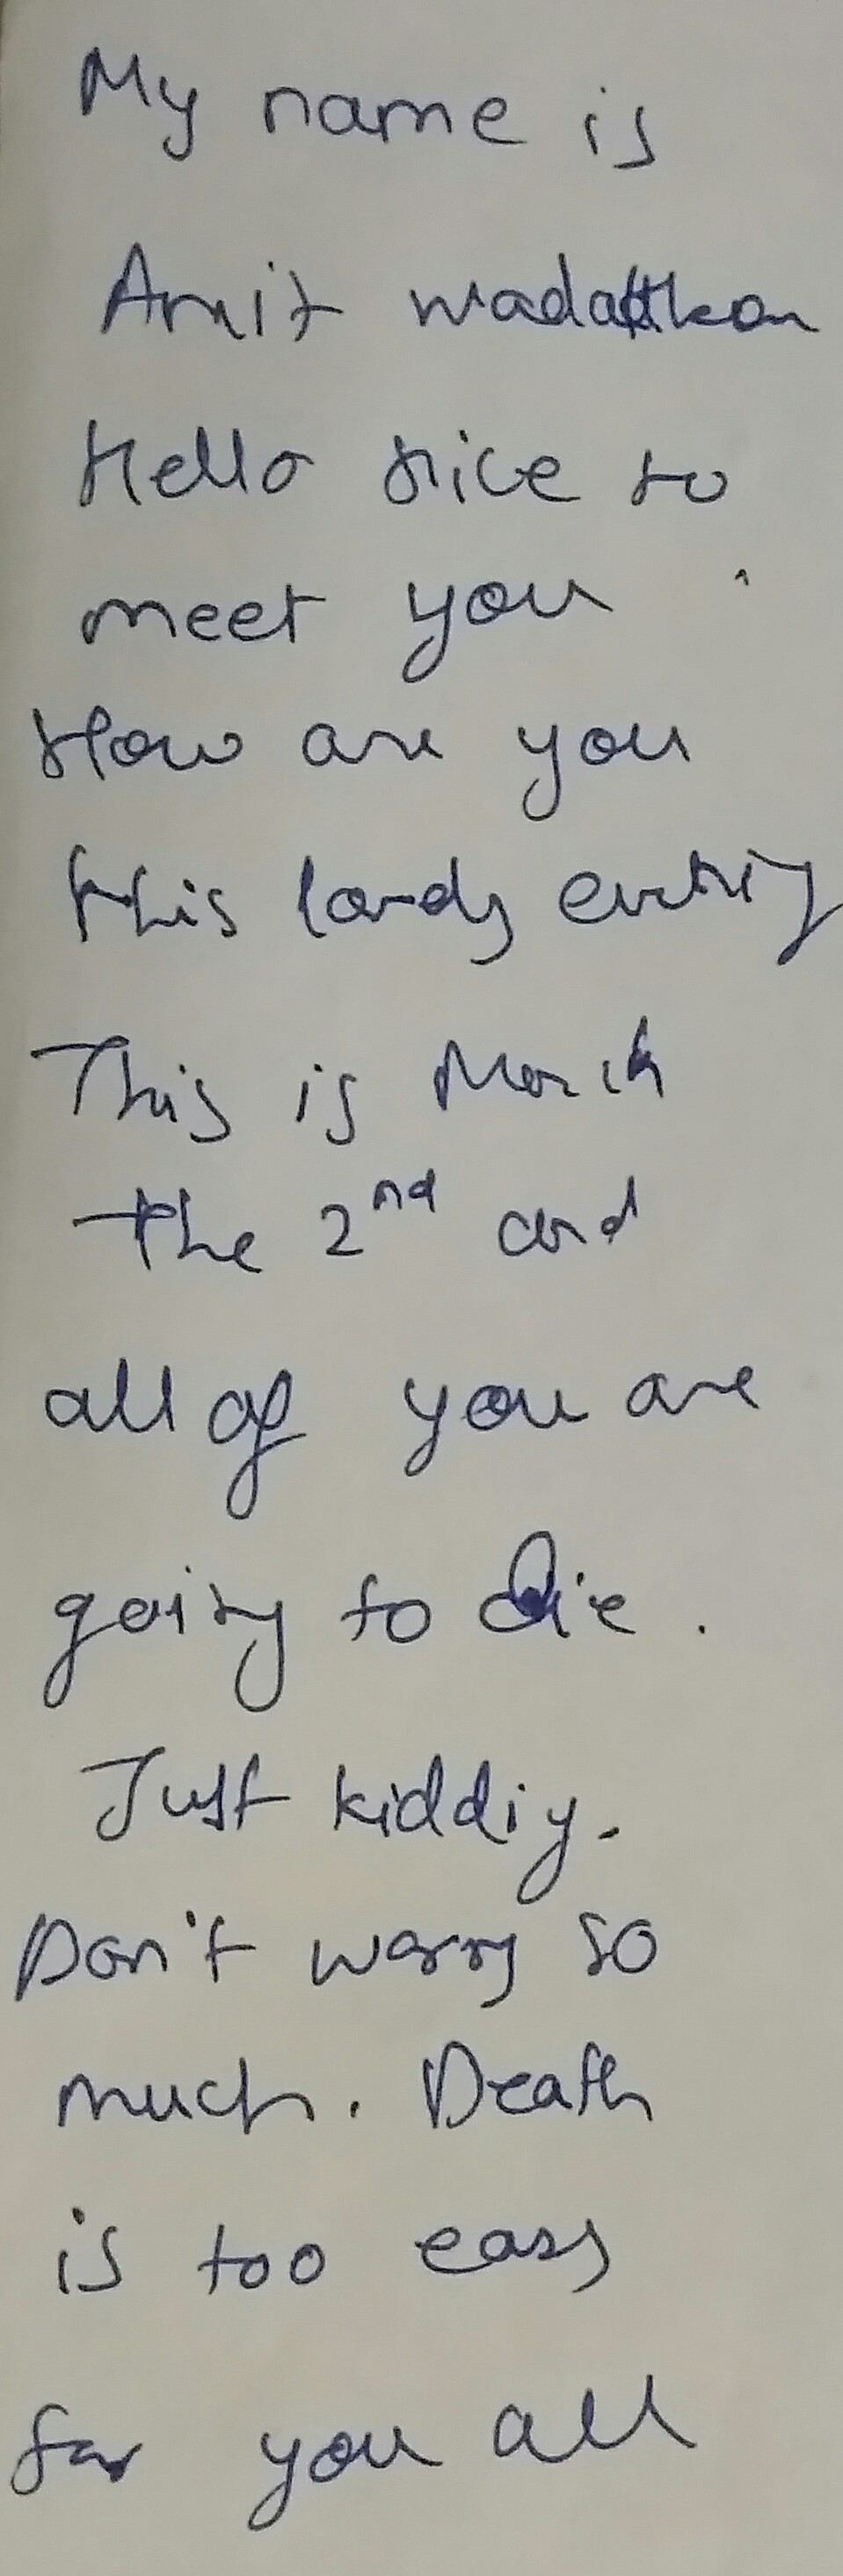 My name is
Amit
Hello nice to
meet you
How are you
this lovely evening
This is March
the 2nd and
all of you are
going to die.
Just kiddiy.
Don't worry so
much. Death
is too easy
for you all